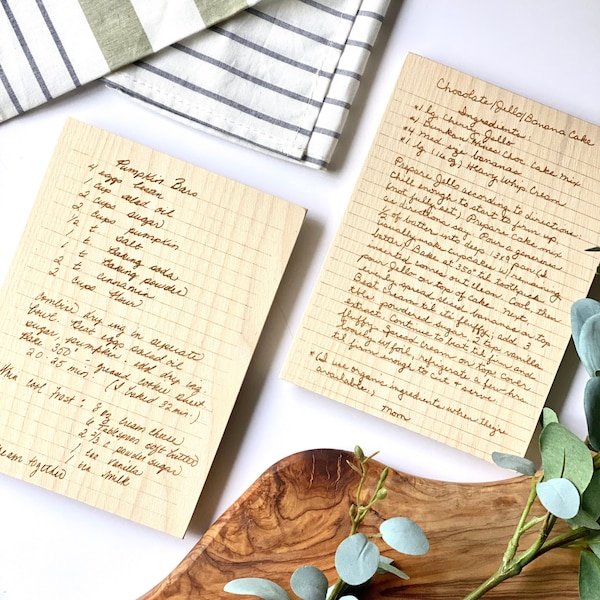 Pumpkin Bars
4 eggs beaten
1 cup salad oil
2 cups sugar
2 cups pumpkin
1/2 t salt
1 t baking soda
2 t baking powder
2 t cinnamon
2 cups flour
Combine dry ing in seperate
bowl. Beat eggs salad oil
sugar pumpkin add dry ing
Bake 350° greased cookie sheet
20-25 min. (I baked 30 min.)
When cool Frost: 3 oz cream cheese
6 Tablespoons soft butter
2 1/2 c powder sugar
1 tea vanilla
Cream together 1 tea milk
Chocolate/Jello/Banana Cake
Ingredients:
*1 lg Cherry Jello
*1 Dunkan Hines Choc Cake Mix
*4 med size bananas
*1 lg (16 oz) Heavy Whip Cream
Prepare Jello according to directions.
Chill enough to start to firm up,
(not fully set). Prepare Cake mix
as directions say. Pour a generous
1/2 of batter into deep 13x9 pan (I
usually make cupcakes w/ remaining
batter). Bake at 350° til toothpick
inserted comes out clean. Cool, then
pour Jello on top of cake. Next,
evenly spread sliced bananas on top.
Beat cream til its fluffy, add 3
tbls. powdered sugar & 2 tsp vanilla
extract. Continue to beat til firm and
fluffy. Spread cream on top. Cover
lightly w/ foil, refrigerate a few hrs
til firm enough to cut & serve.
*(I use organic ingredients when they're
available.)
Mom